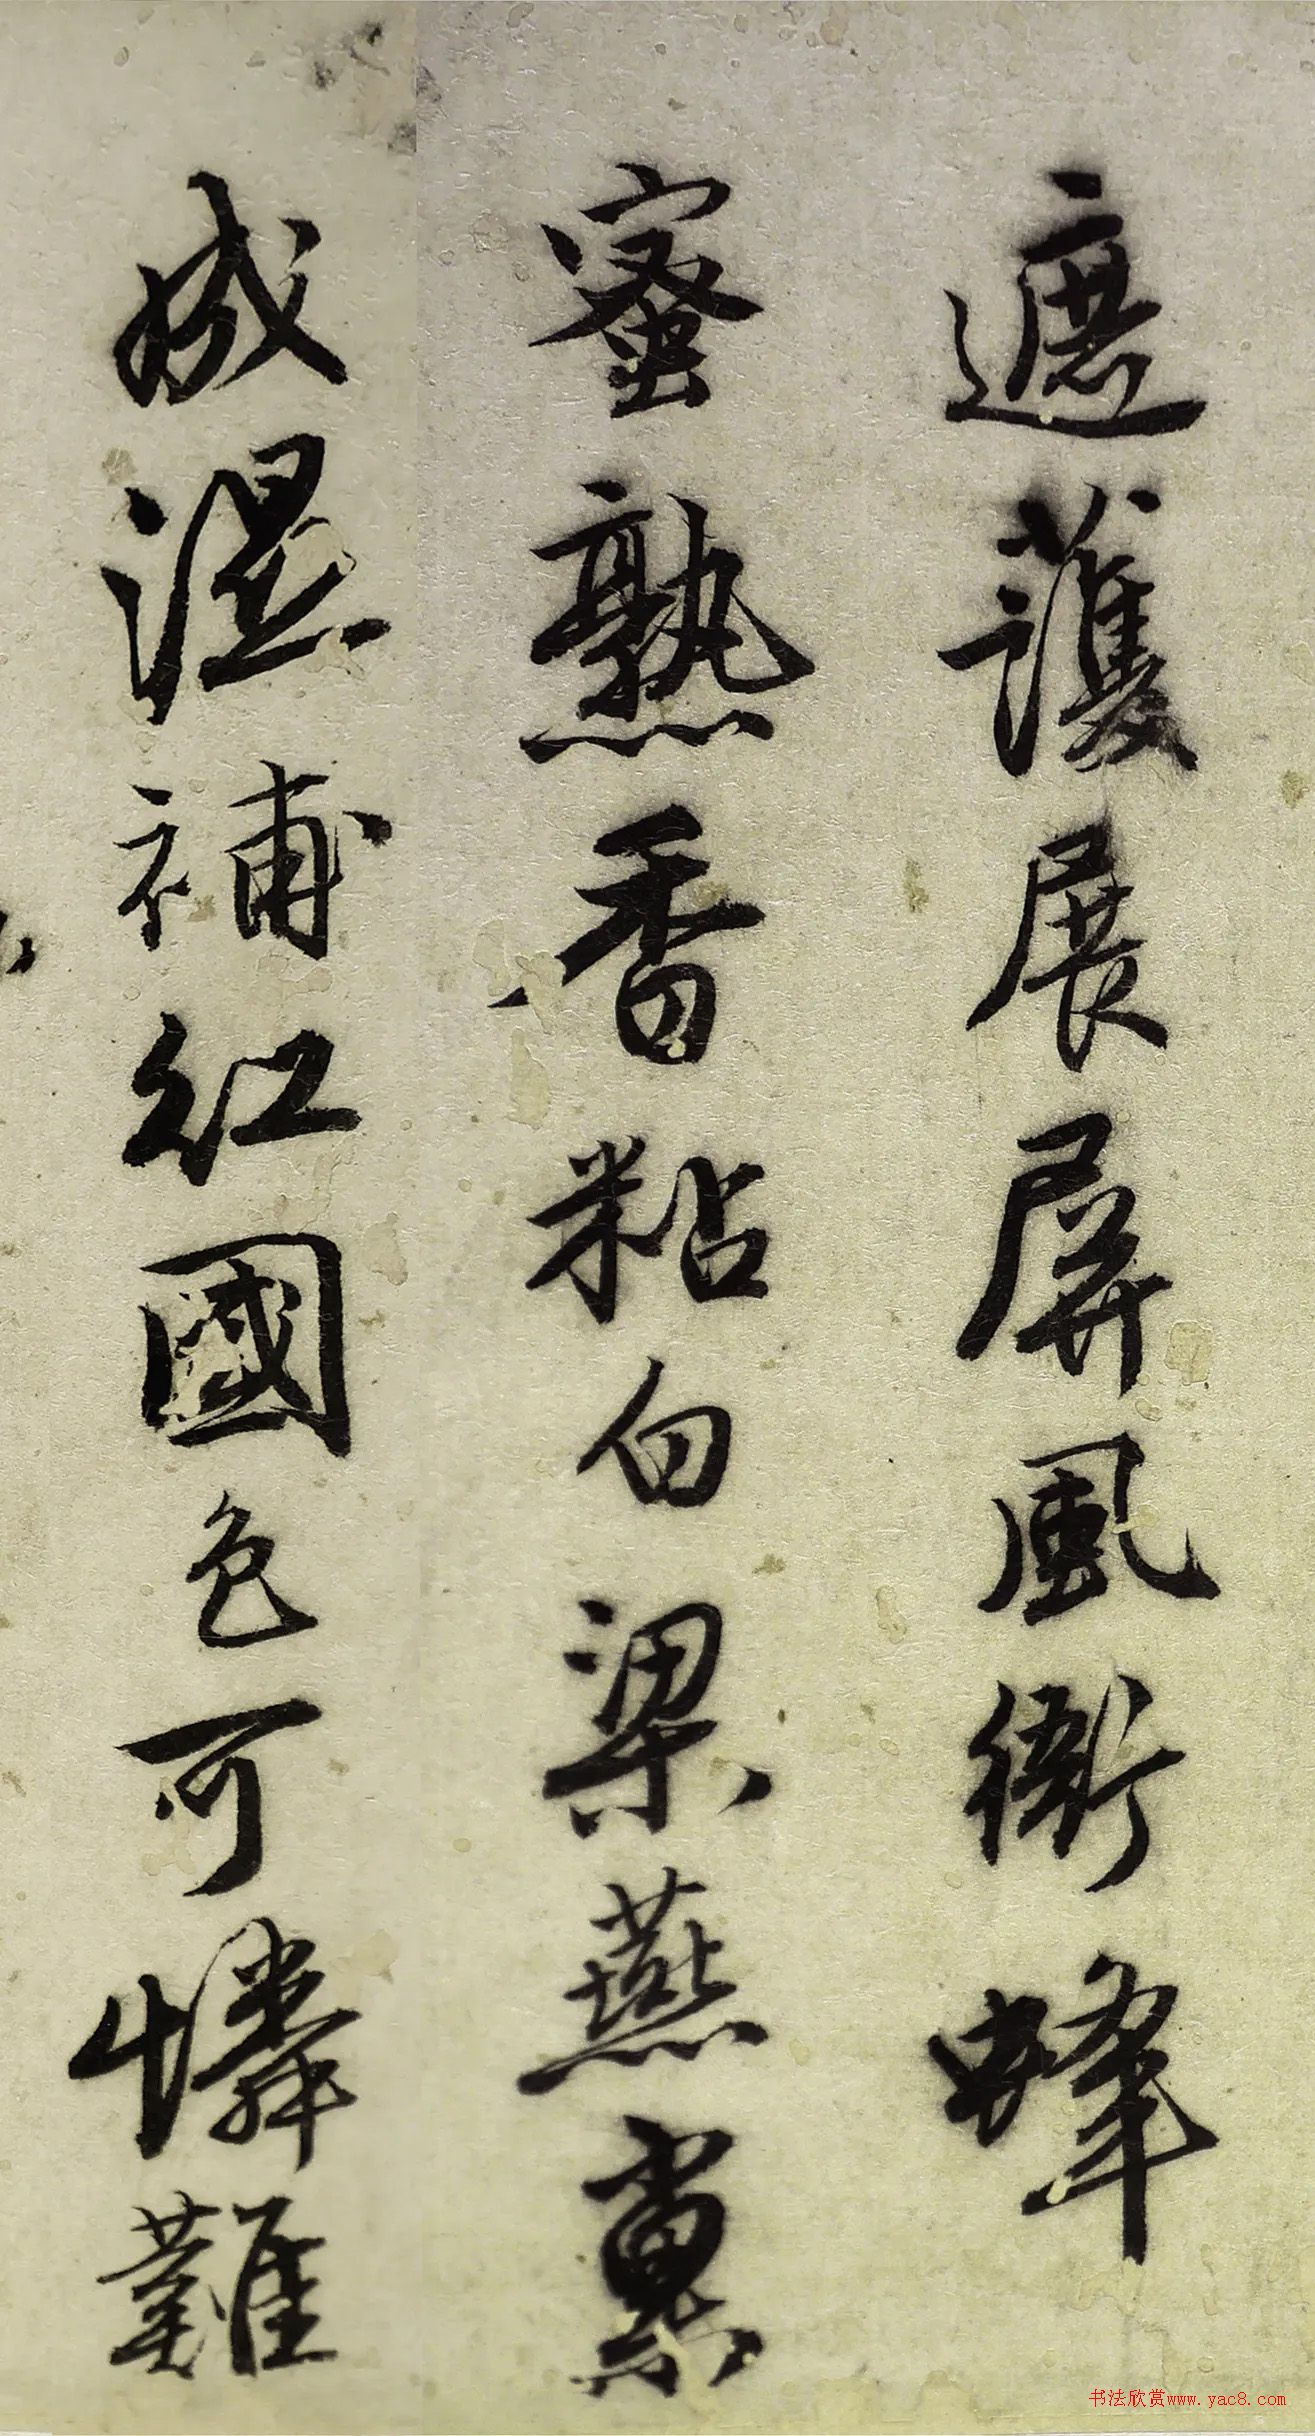 遮護展屏風衙蜂
蜜熟香粘白梁燕
成泥補紅國色可憐難
书法欣赏www.yac8.com